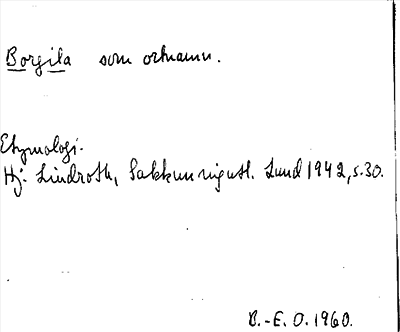 Borgila som ortnamn.
Etymologi.
Hj. Lindroth, Sakkunnigutl. Lund 1942, s. 30.
B.-E. O. 1960.